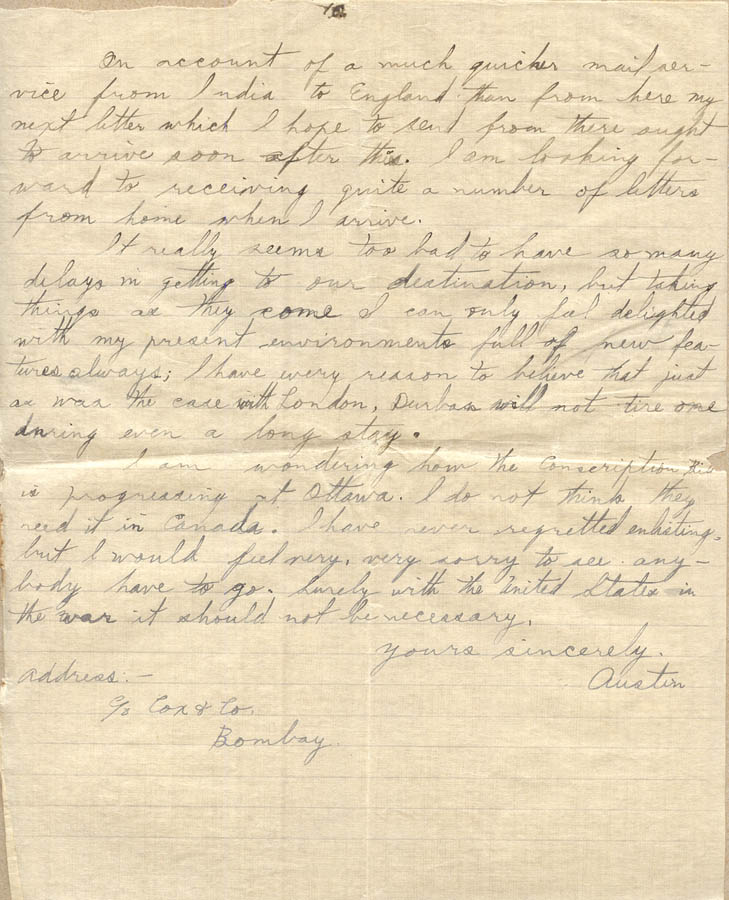 On account of a much quicker mail ser-
vice from India to England than from here my
next letter which I hope to send from there ought
to arrive soon after this. I am looking for-
ward to receiving quite a number of letters
from home when I arrive.
It really seems too bad to have so many
delays in getting to our destination, but taking
things as they come I can only feel delighted
with my present environments full of new fea-
tures always; I have every reason to believe that just
as was the case with London, Durban will not tire one
during even a long stay.
I am wondering how the Conscription Bill
is progressing at Ottawa. I do not think they
need it in Canada. I have never regretted enlisting,
but I would feel very, very sorry to see any-
body have to go. Surely with the United States in
the war it should not be necessary.
Yours sincerely.
Austin
Address:-
c/o Cox & Co.
Bombay.